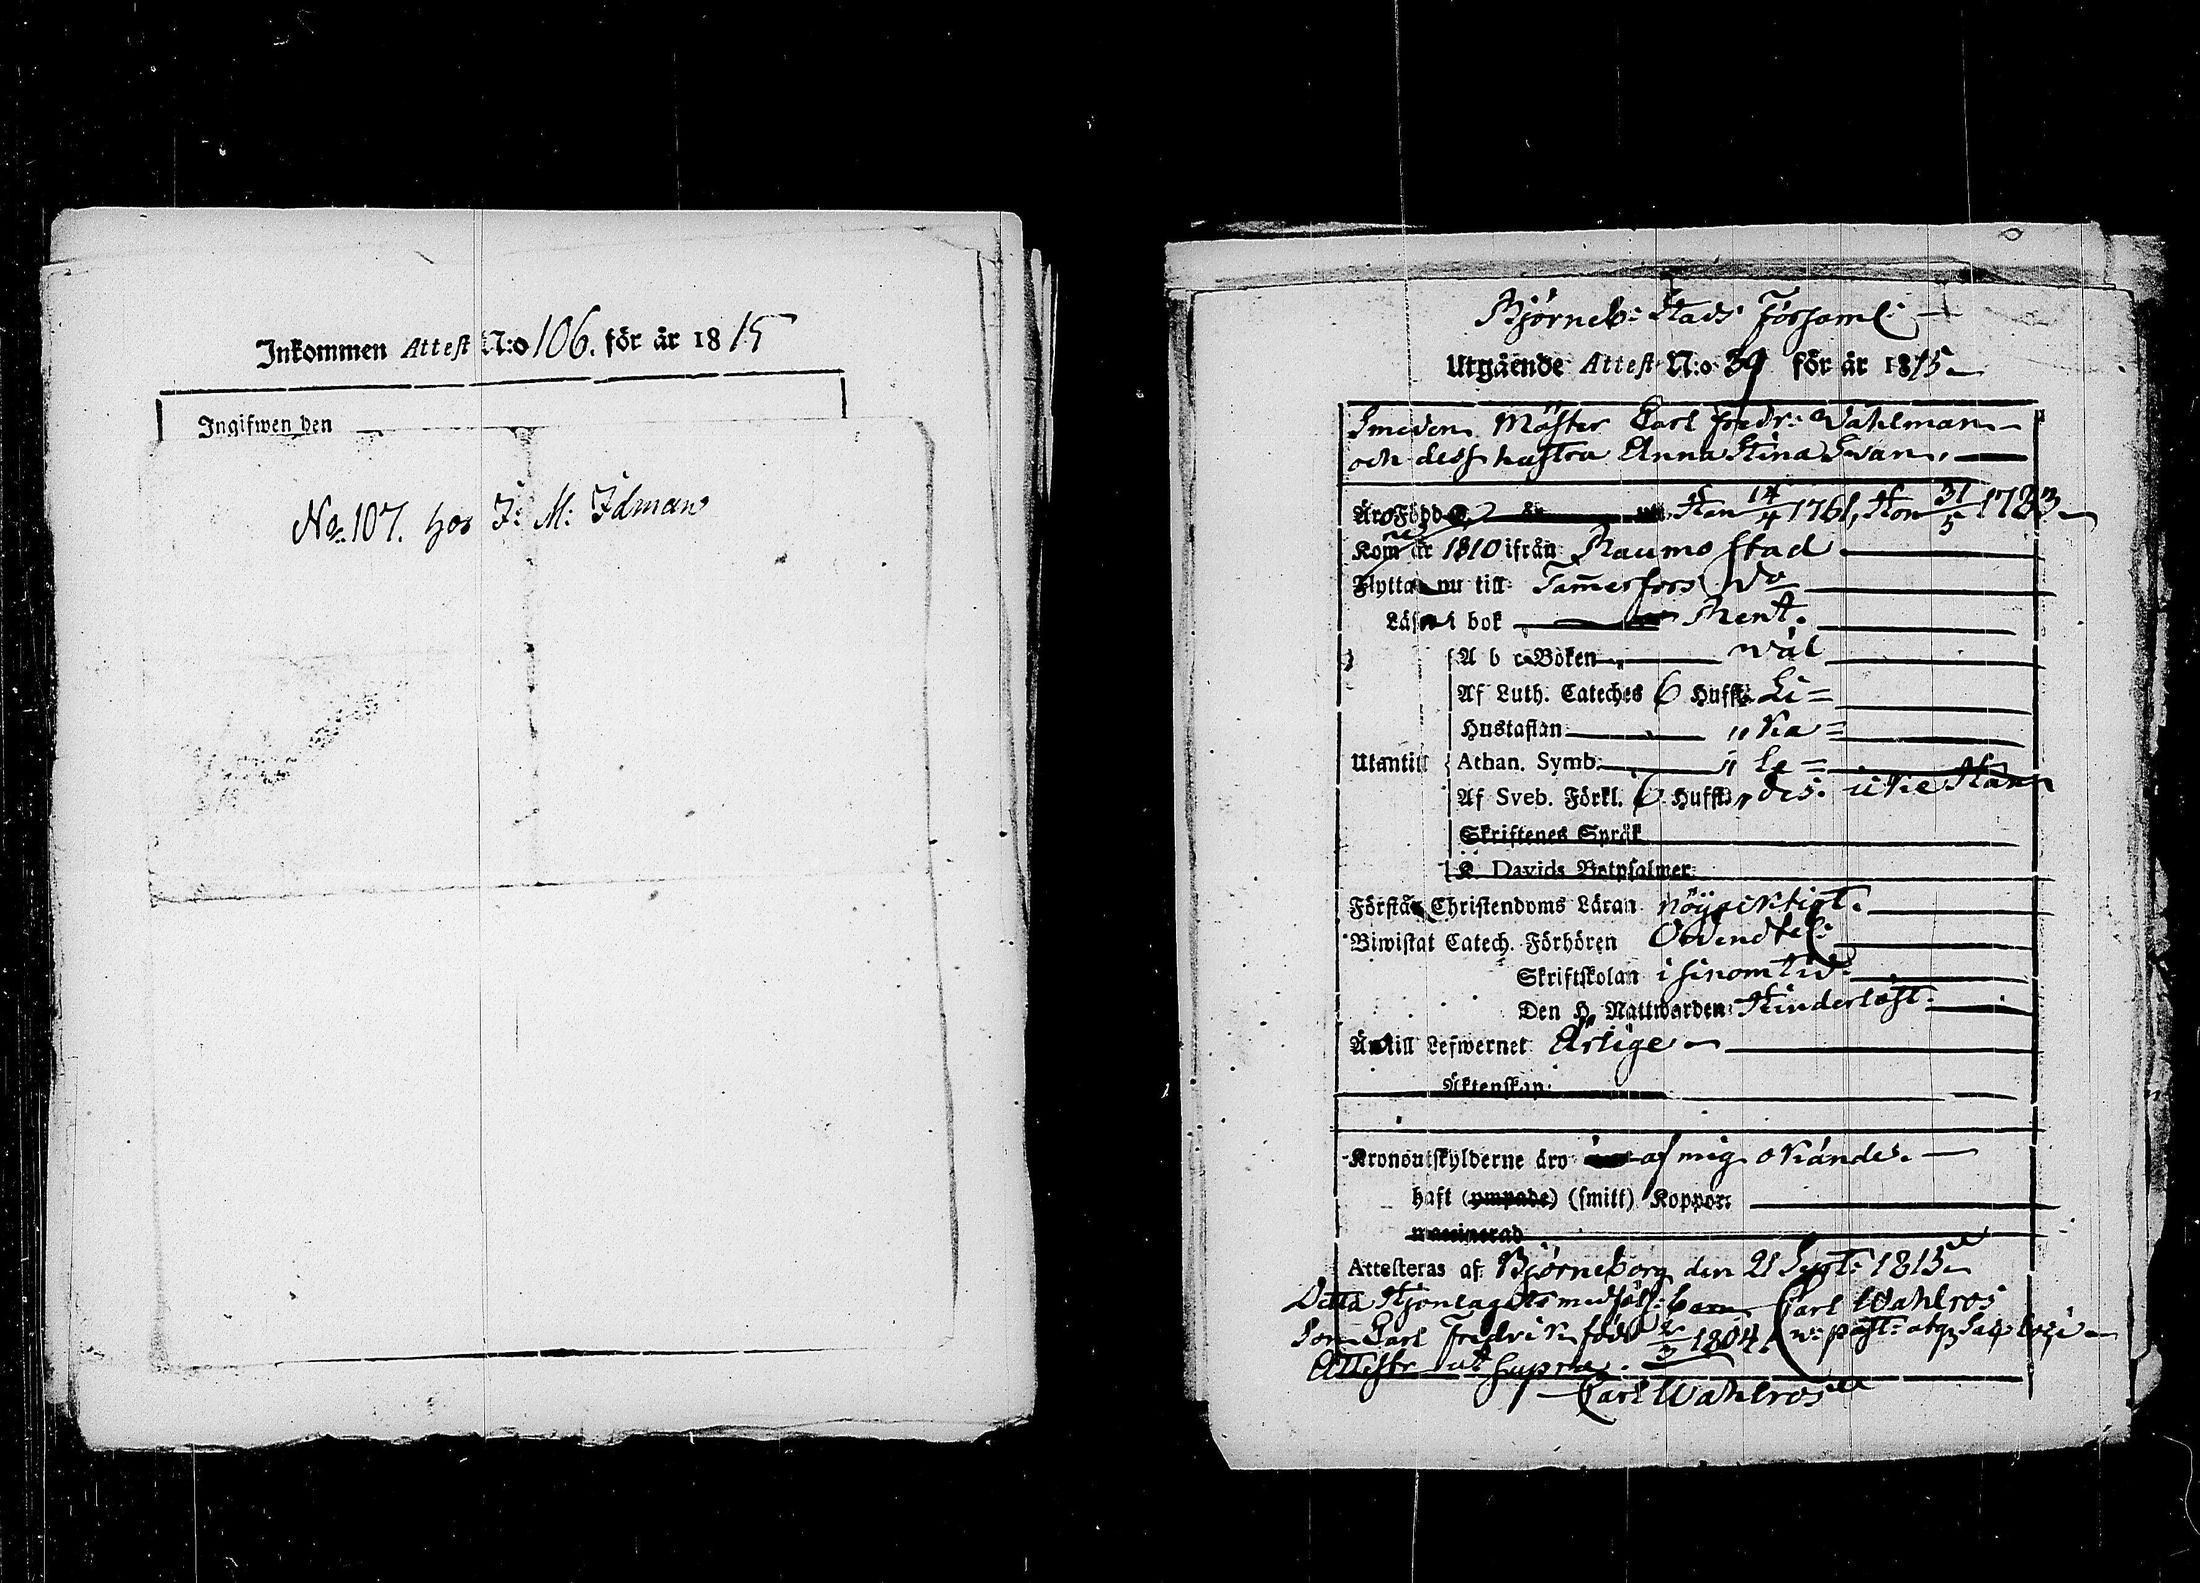 Inkommen Attest N:o 106. för år 1815
Ingifwen den
No. 107. hos J: M: Idman
Björneb: Stads Församl:
Utgående Attest N:o 39 för år 1815
Smeden Mäster Carl Fredr: Wahlman
och dess hustru Anna Stina Svan,
Äro Född Han 14/4 1761, Hon 31/5 1783
Kom år 1810 ifrån Raumo stad
Flytta nu till Tammerfors
Läsa i bok Rent.
A b c-Boken wäl
Af Luth. Cateches 6 Hufst. Li=
Hustaflan " ka=
Utantill Athan. Symb. " le=
Af Sveb. Förkl. 6 Hufst. des. icke Han
Skriftenes Språk
K. Davids Botpsalmer
Förstå Christendoms Läran nöyacktigt.
Biwistat Catech. Förhören Owendtel:
Skriftskolan i sinom tid
Den H. Nattwarden Hinderlöst
Ä till Lefwernet Ärlige
Äktenskap
Kronoutskylderne äro af mig okände.
haft (ympade) (smitt) Koppor:
vaccinerad
Attesteras af Björneborg den 21 Sept: 1815
Detta Hjonlagets medfölj: barn Carl Wahlros
Son Carl Fredrik född 2/3 1804. v: past: atq Sac:
Attestr ut supra.
Carl Wahlros